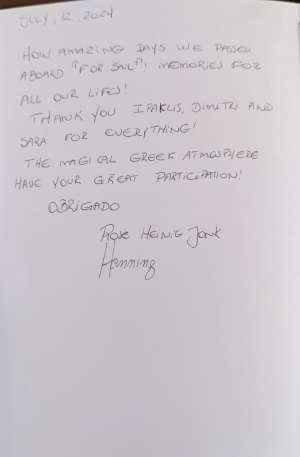 JULY, 12, 2024
HOW AMAZING DAYS WE PASSED
ABOARD "FOR SAIL"! MEMORIES FOR
ALL OUR LIFES!
THANK YOU IRAKLIS, DIMITRI AND
SARA FOR EVERYTHING!
THE MAGICAL GREEK ATMOSPHERE
HAVE YOUR GREAT PARTICIPATION!
OBRIGADO
ROSE HEINIG JONK
Henning